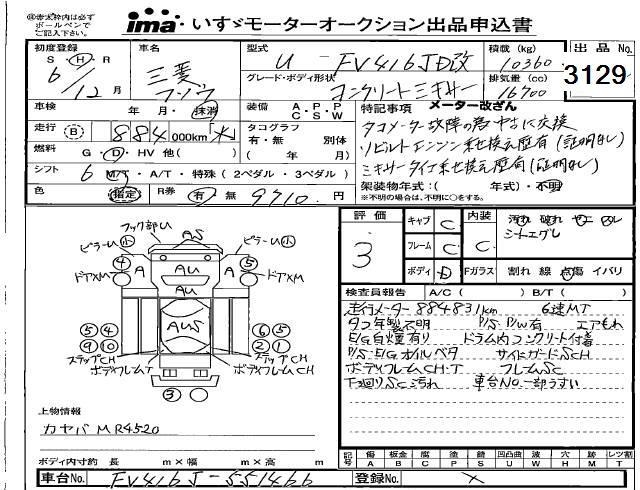 ㊟赤太枠内は必ず
赤ボールペンで
ご記入下さい。
ima いすゞモーターオークション出品申込書
初度登録 S Ⓗ R 6/12月
車名 三菱 フソウ
型式 U - FV416JD改
グレード・ボディ形状 コンクリートミキサー
積載 (kg) 10360
排気量 (cc) 16700
出品No. 3129
車検 年 月・抹消
装備 A/C P/S P/W
特記事項 メーター改ざん
走行 Ⓑ 884,000km
タコグラフ 有・無 別体 ( 年 月)
タコメーター故障の為中古に交換
燃料 G・Ⓓ・HV 他( )
リビルトエンジン載せ換え歴有(証明なし)
シフト 6 M/T・A/T・特殊(2ペダル・3ペダル)
ミキサータイプ載せ換え歴有(証明なし)
架装物年式:( 年式)・不明
※不明の場合は、不明に○をする
色 指定 R券 有 無 9710円
評価 3
キャブ C
フレーム C
ボディ D
内装 C
汚れ 破れ
シートエグレ
Fガラス 割れ 線 点傷 イバリ
検査員報告 A/C( ) B/T( )
走行メーター884831km 6速MT
タコ年製不明 P/S P/W有 エアもれ
E/G白煙有り ドラム内コンクリート付着
P/S・E/Gオイルベタ サイドガードSCH
ボディフレームCH・T フレームSC
下廻りSC汚れ 車台No.一部うすい
フック部U
ピラーU小 AS ピラーU小
④ A AU A ⑤
ドアXM AU ドアXM
⑤ ④ AUS ⑥ ⑤
⑨ ⑩ ② ①
ステップCH ステップCH
ボディフレームT ボディフレームCH
③
上物情報
カヤバ MR4520
ボディ内寸約 長 m×幅 m×高 m
記号 傷A 板金B 腐C 塗P 錆S 凹凸曲U 波W 穴H 跡M レツ割T
車台No. FV416J-551466
登録No.